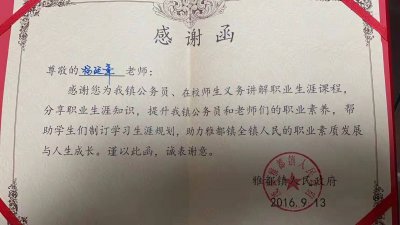 感谢函
尊敬的 老师：
感谢您为我镇公务员、在校师生义务讲解职业生涯课程，
分享职业生涯知识，提升我镇公务员和老师们的职业素养，帮
助学生们制订学习生涯规划，助力雅都镇全镇人民的职业素质发展
与人生成长。谨以此函，诚表谢意。
雅都镇人民政府
2016.9.13